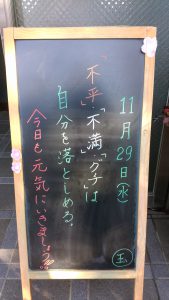 11月29日(水)
「不平」「不満」「グチ」は
自分を落としめる。
今日も元気にいきましょう!!
玉